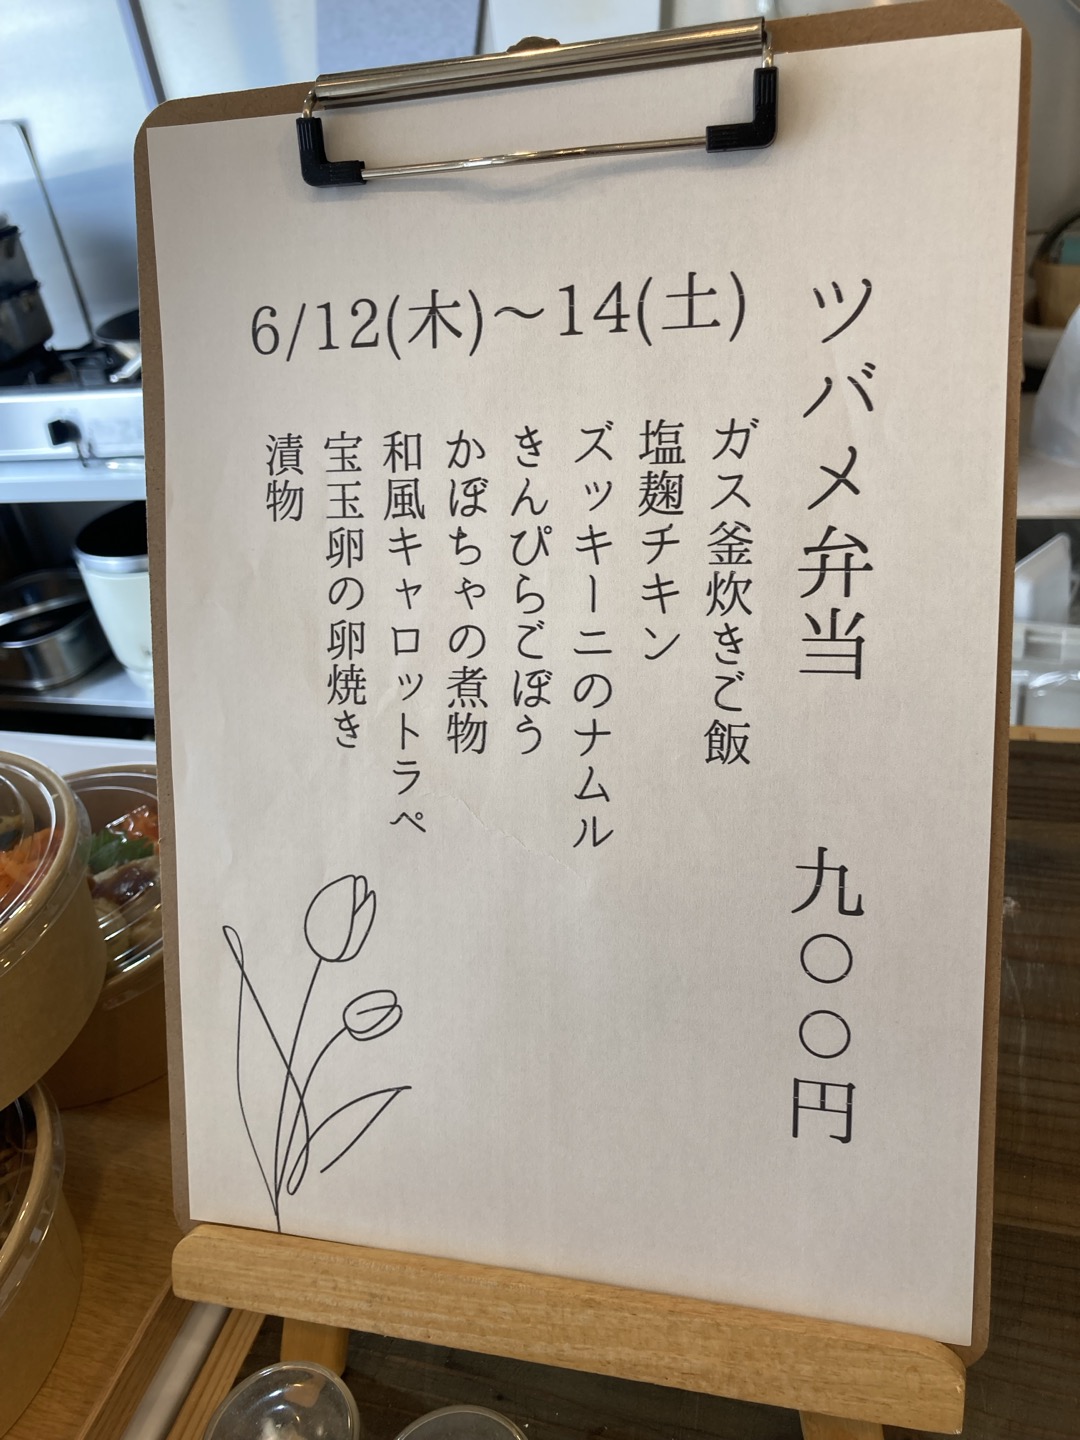 ツバメ弁当 九〇〇円
6/12(木)～14(土)
ガス釜炊きご飯
塩麹チキン
ズッキーニのナムル
きんぴらごぼう
かぼちゃの煮物
和風キャロットラペ
宝玉卵の卵焼き
漬物